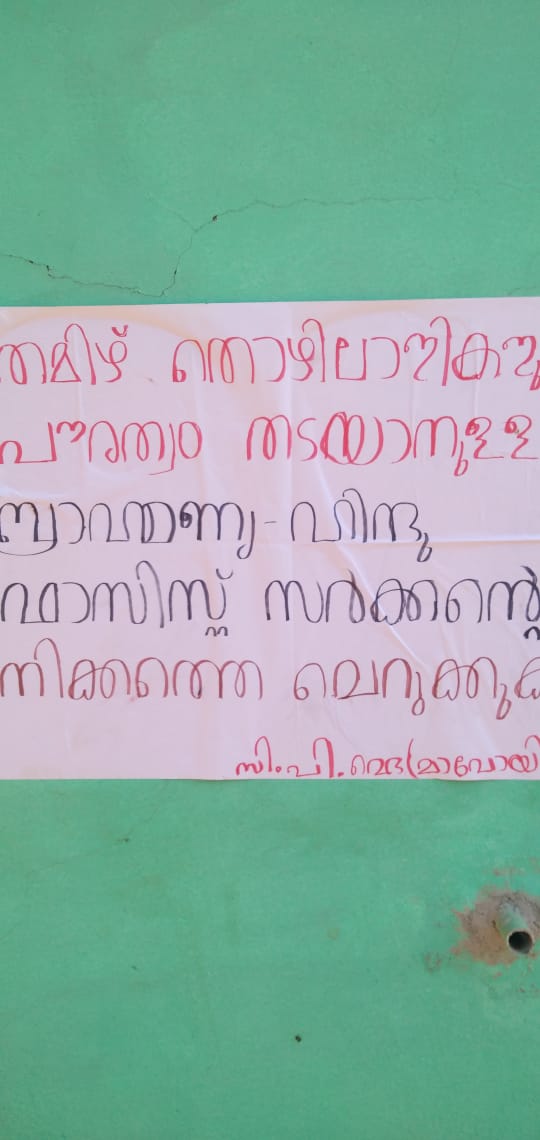 തമിഴ് തൊഴിലാളികളു
പൗരത്വം തടയാനുള്ള
ബ്രാഹ്മണ്യ-ഹിന്ദു
ഫാസിസ്റ്റ് സർക്കന്റെ
നിക്കത്തെ ചെറുക്കുക
സി.പി.ഐ(മാവോയി